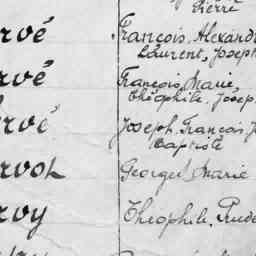 Pierre
rvé François, Alexand
Laurent, Joseph
rvé François, Marie,
Théophile, Josep
rvé Joseph, François, J
Baptiste
rvoh Georges, Marie
rvoy Théophile, Prude